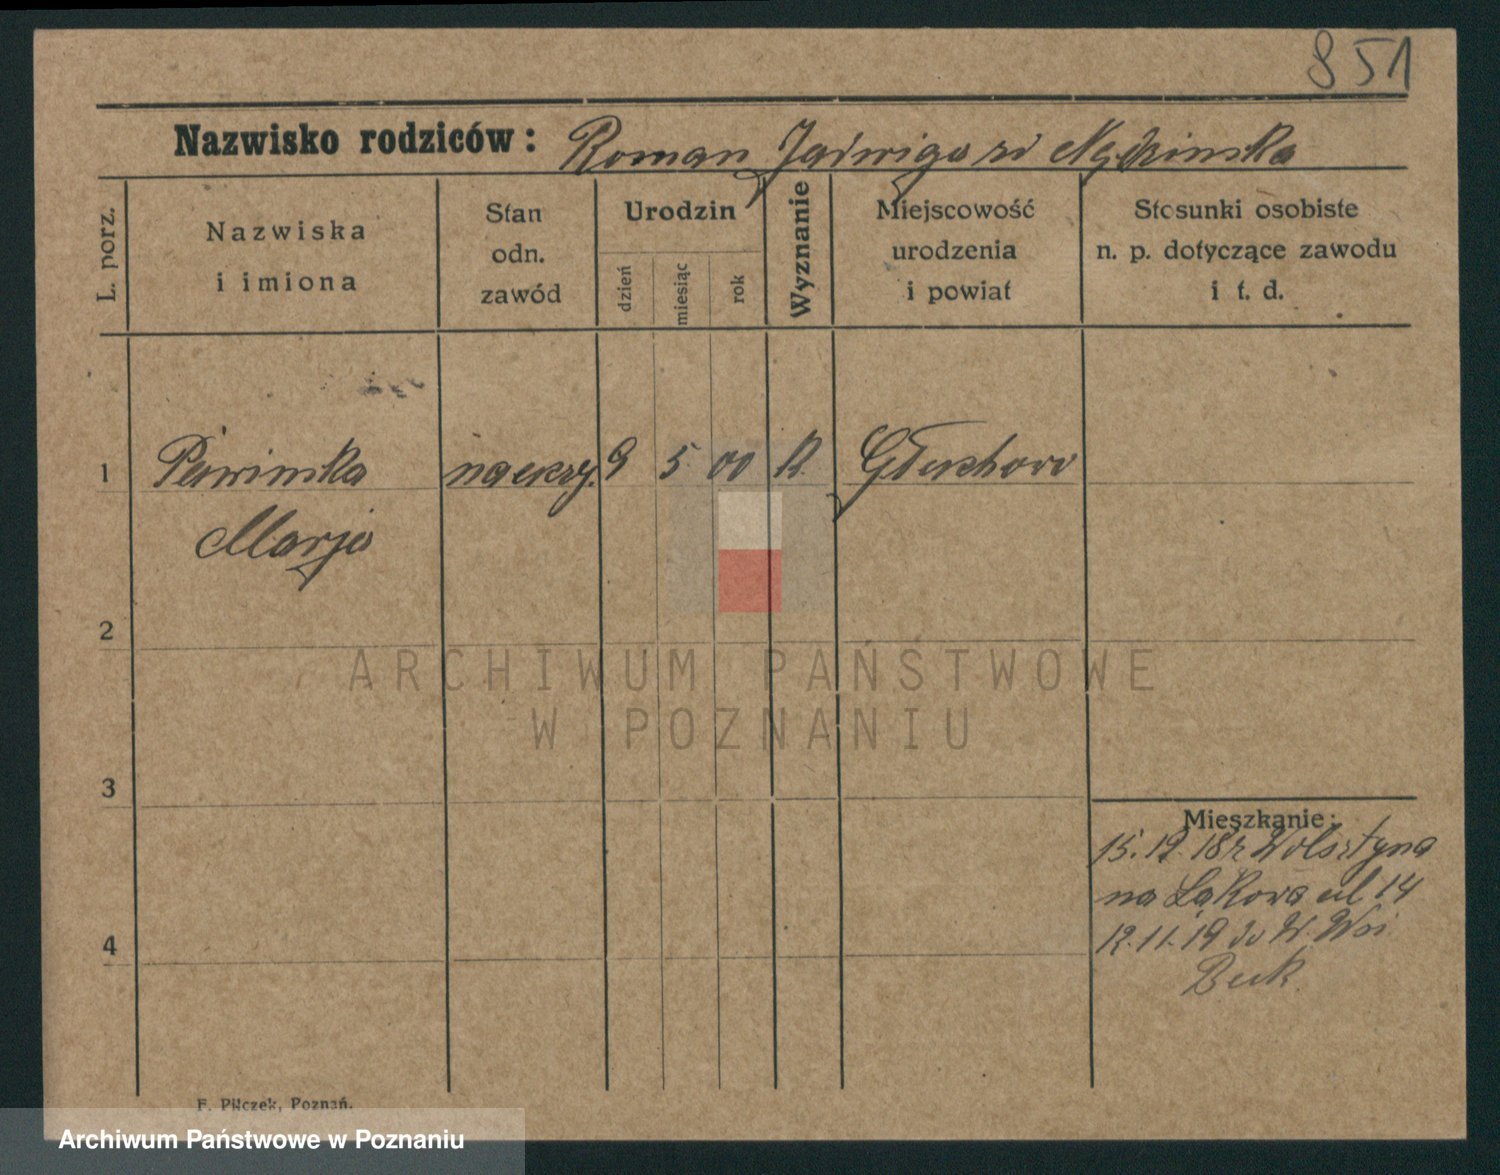 851
Nazwisko rodziców: Roman Jadwiga zd
L. porz.
Nazwiska
i imiona
Stan
odn.
zawód
Urodzin
dzień
miesiąc
rok
Wyznanie
Miejscowość
urodzenia
i powiat
Stosunki osobiste
n. p. dotyczące zawodu
i t. d.
1 nauczy. 9 5 00 K. Głuchowo
Marja
2
3
4
Mieszkanie:
15.12.18 z Wolsztyna
na Łąkową ul 14
12.11.19 do W.
F. Pilczek, Poznań.
ARCHIWUM PAŃSTWOWE
W POZNANIU
Archiwum Państwowe w Poznaniu